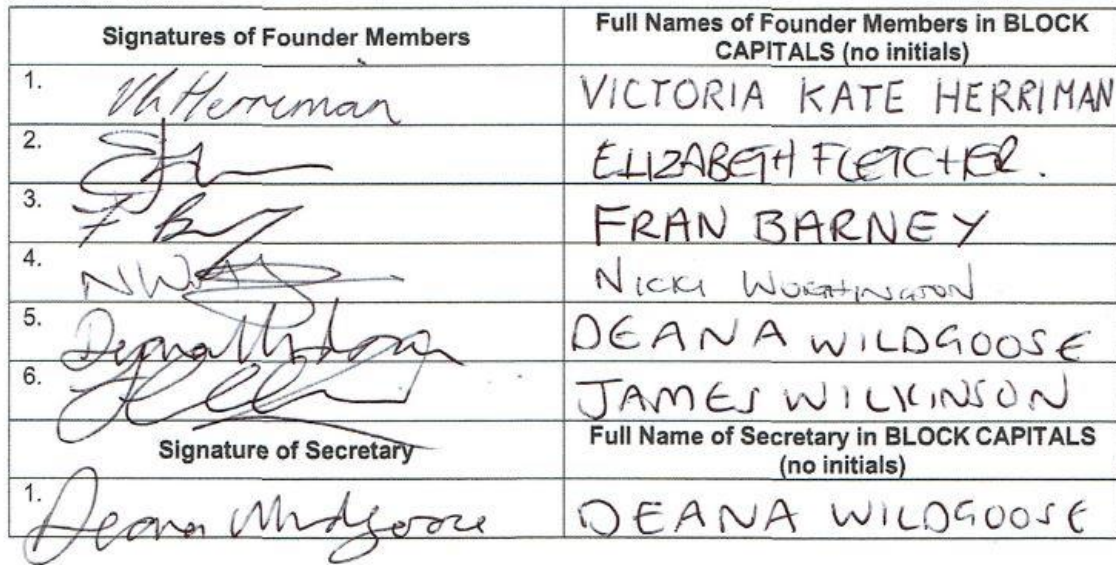 Signatures of Founder Members
Full Names of Founder Members in BLOCK
CAPITALS (no initials)
1. VKHerriman
VICTORIA KATE HERRIMAN
2.
ELIZABETH FLETCHER.
3. F B
FRAN BARNEY
4. NW
NICKI WORTHINGTON
5. Deana
DEANA WILDGOOSE
6.
JAMES WILKINSON
Signature of Secretary
Full Name of Secretary in BLOCK CAPITALS
(no initials)
1. Deana Wildgoose
DEANA WILDGOOSE